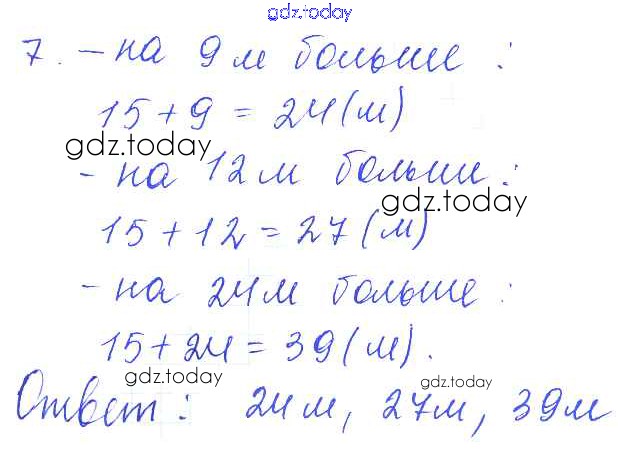 gdz.today
7. – на 9 м больше :
15 + 9 = 24 (м)
gdz.today
– на 12 м больше :
gdz.today
15 + 12 = 27 (м)
– на 24 м больше :
15 + 24 = 39 (м).
gdz.today
gdz.today
Ответ : 24 м, 27 м, 39 м